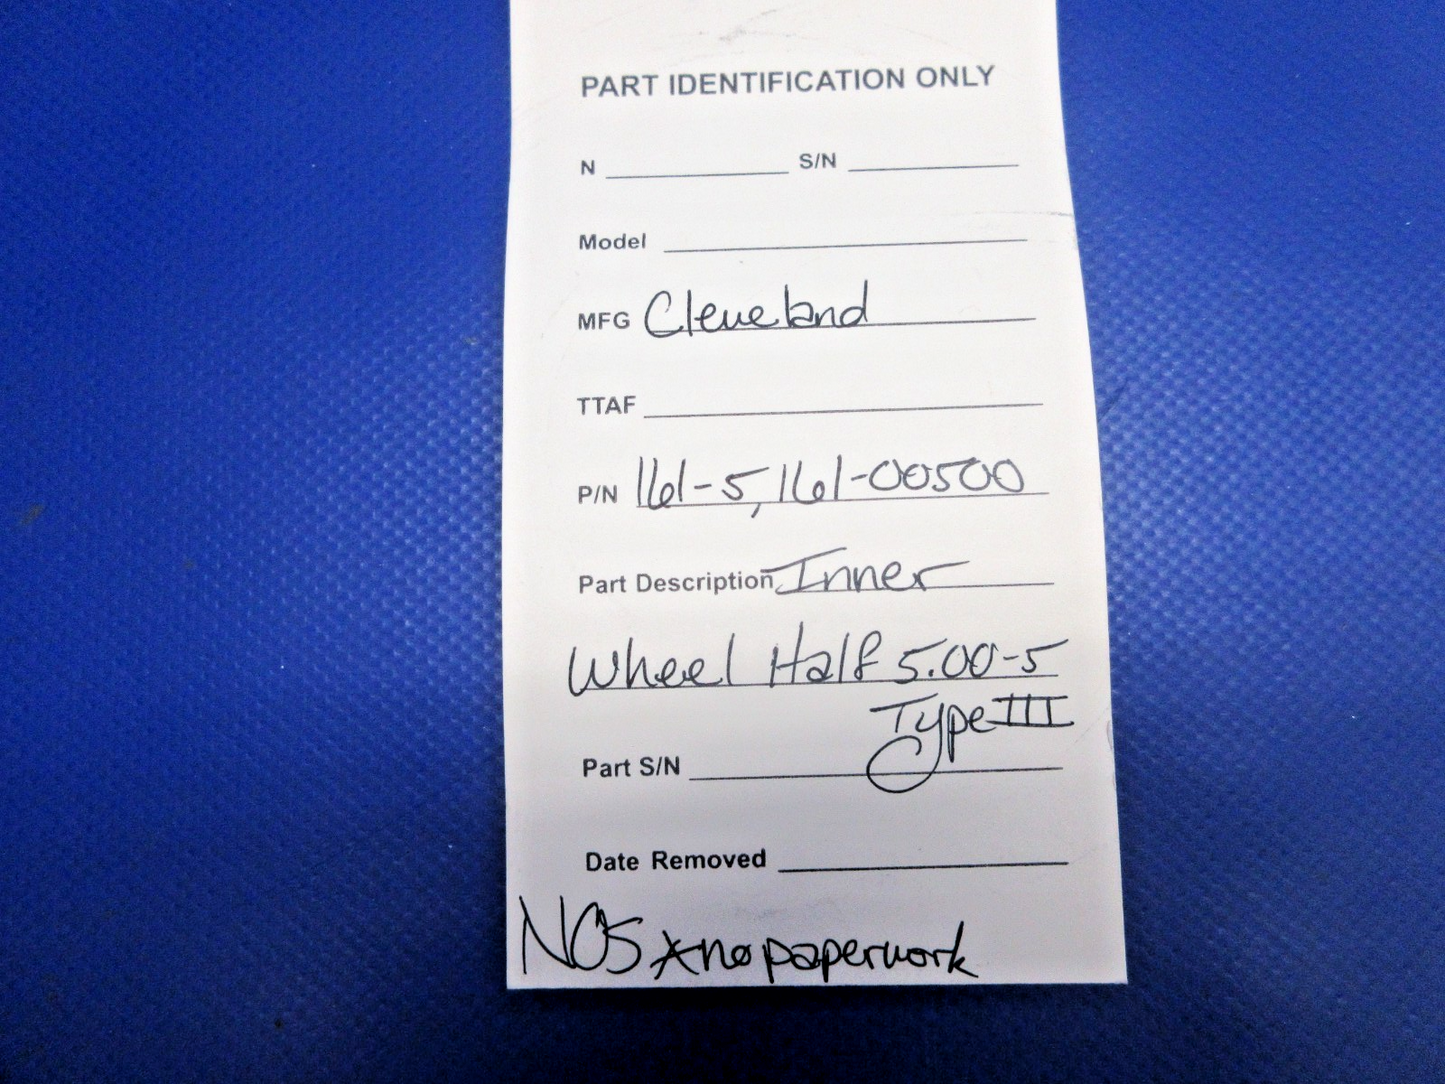 PART IDENTIFICATION ONLY
N S/N
Model
MFG Cleveland
TTAF
P/N 161-5, 161-00500
Part Description Inner
Wheel Half 5.00-5
Type III
Part S/N
Date Removed
NOS *no paperwork